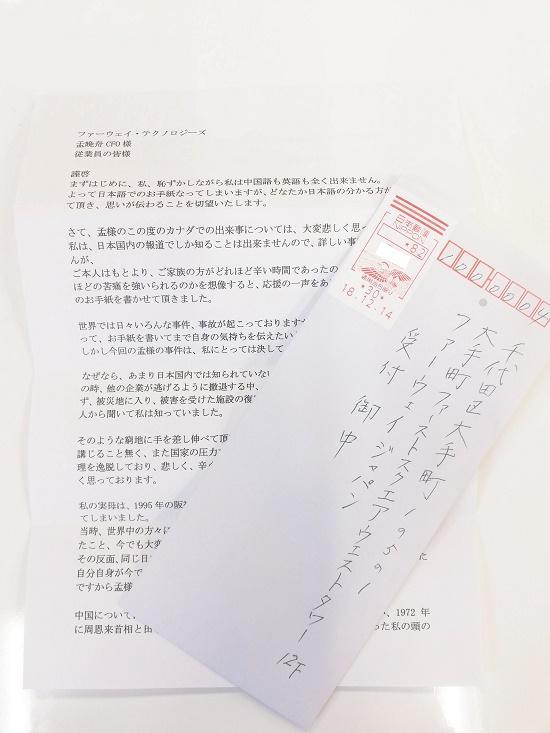 ファーウェイ・テクノロジーズ
孟晩舟 CFO 様
従業員の皆様
謹啓
まずはじめに、私、恥ずかしながら私は中国語も英語も全く出来ません。
よって日本語でのお手紙なってしまいますが、どなたか日本語の分かる方が
て頂き、思いが伝わることを切望いたします。
さて、孟様のこの度のカナダでの出来事については、大変悲しく思っ
私は、日本国内の報道でしか知ることは出来ませんので、詳しい事
んが、
ご本人はもとより、ご家族の方がどれほど辛い時間であったの
ほどの苦痛を強いられるのかを想像すると、応援の一声をあ
のお手紙を書かせて頂きました。
世界では日々いろんな事件、事故が起こっておりますが
って、お手紙を書いてまで自身の気持ちを伝えたい
しかし今回の孟様の事件は、私にとっては決して
なぜなら、あまり日本国内では知られていない
の時、他の企業が逃げるように撤退する中、
ず、被災地に入り、被害を受けた施設の復
人から聞いて私は知っていました。
そのような窮地に手を差し伸べて頂
講じること無く、また国家の圧力
理を逸脱しており、悲しく、辛
く思っております。
私の実母は、1995年の阪
てしまいました。
当時、世界中の方々に
たこと、今でも大変
その反面、同じ日
自分自身が今で
ですから孟様
中国について、
、1972 年
に周恩来首相と田
った私の頭の
日本郵便
NIPPON
*82
*30*
18.12.14
千代田区大手町
大手町ファーストスクエアウエストタワー
12F
ファーウェイジャパン
受付 御中